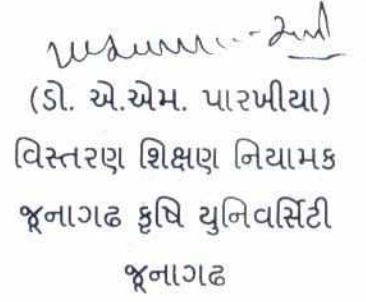 (ડો. એ.એમ. પારખીયા)
વિસ્તરણ શિક્ષણ નિયામક
જૂનાગઢ કૃષિ યુનિવર્સિટી
જૂનાગઢ